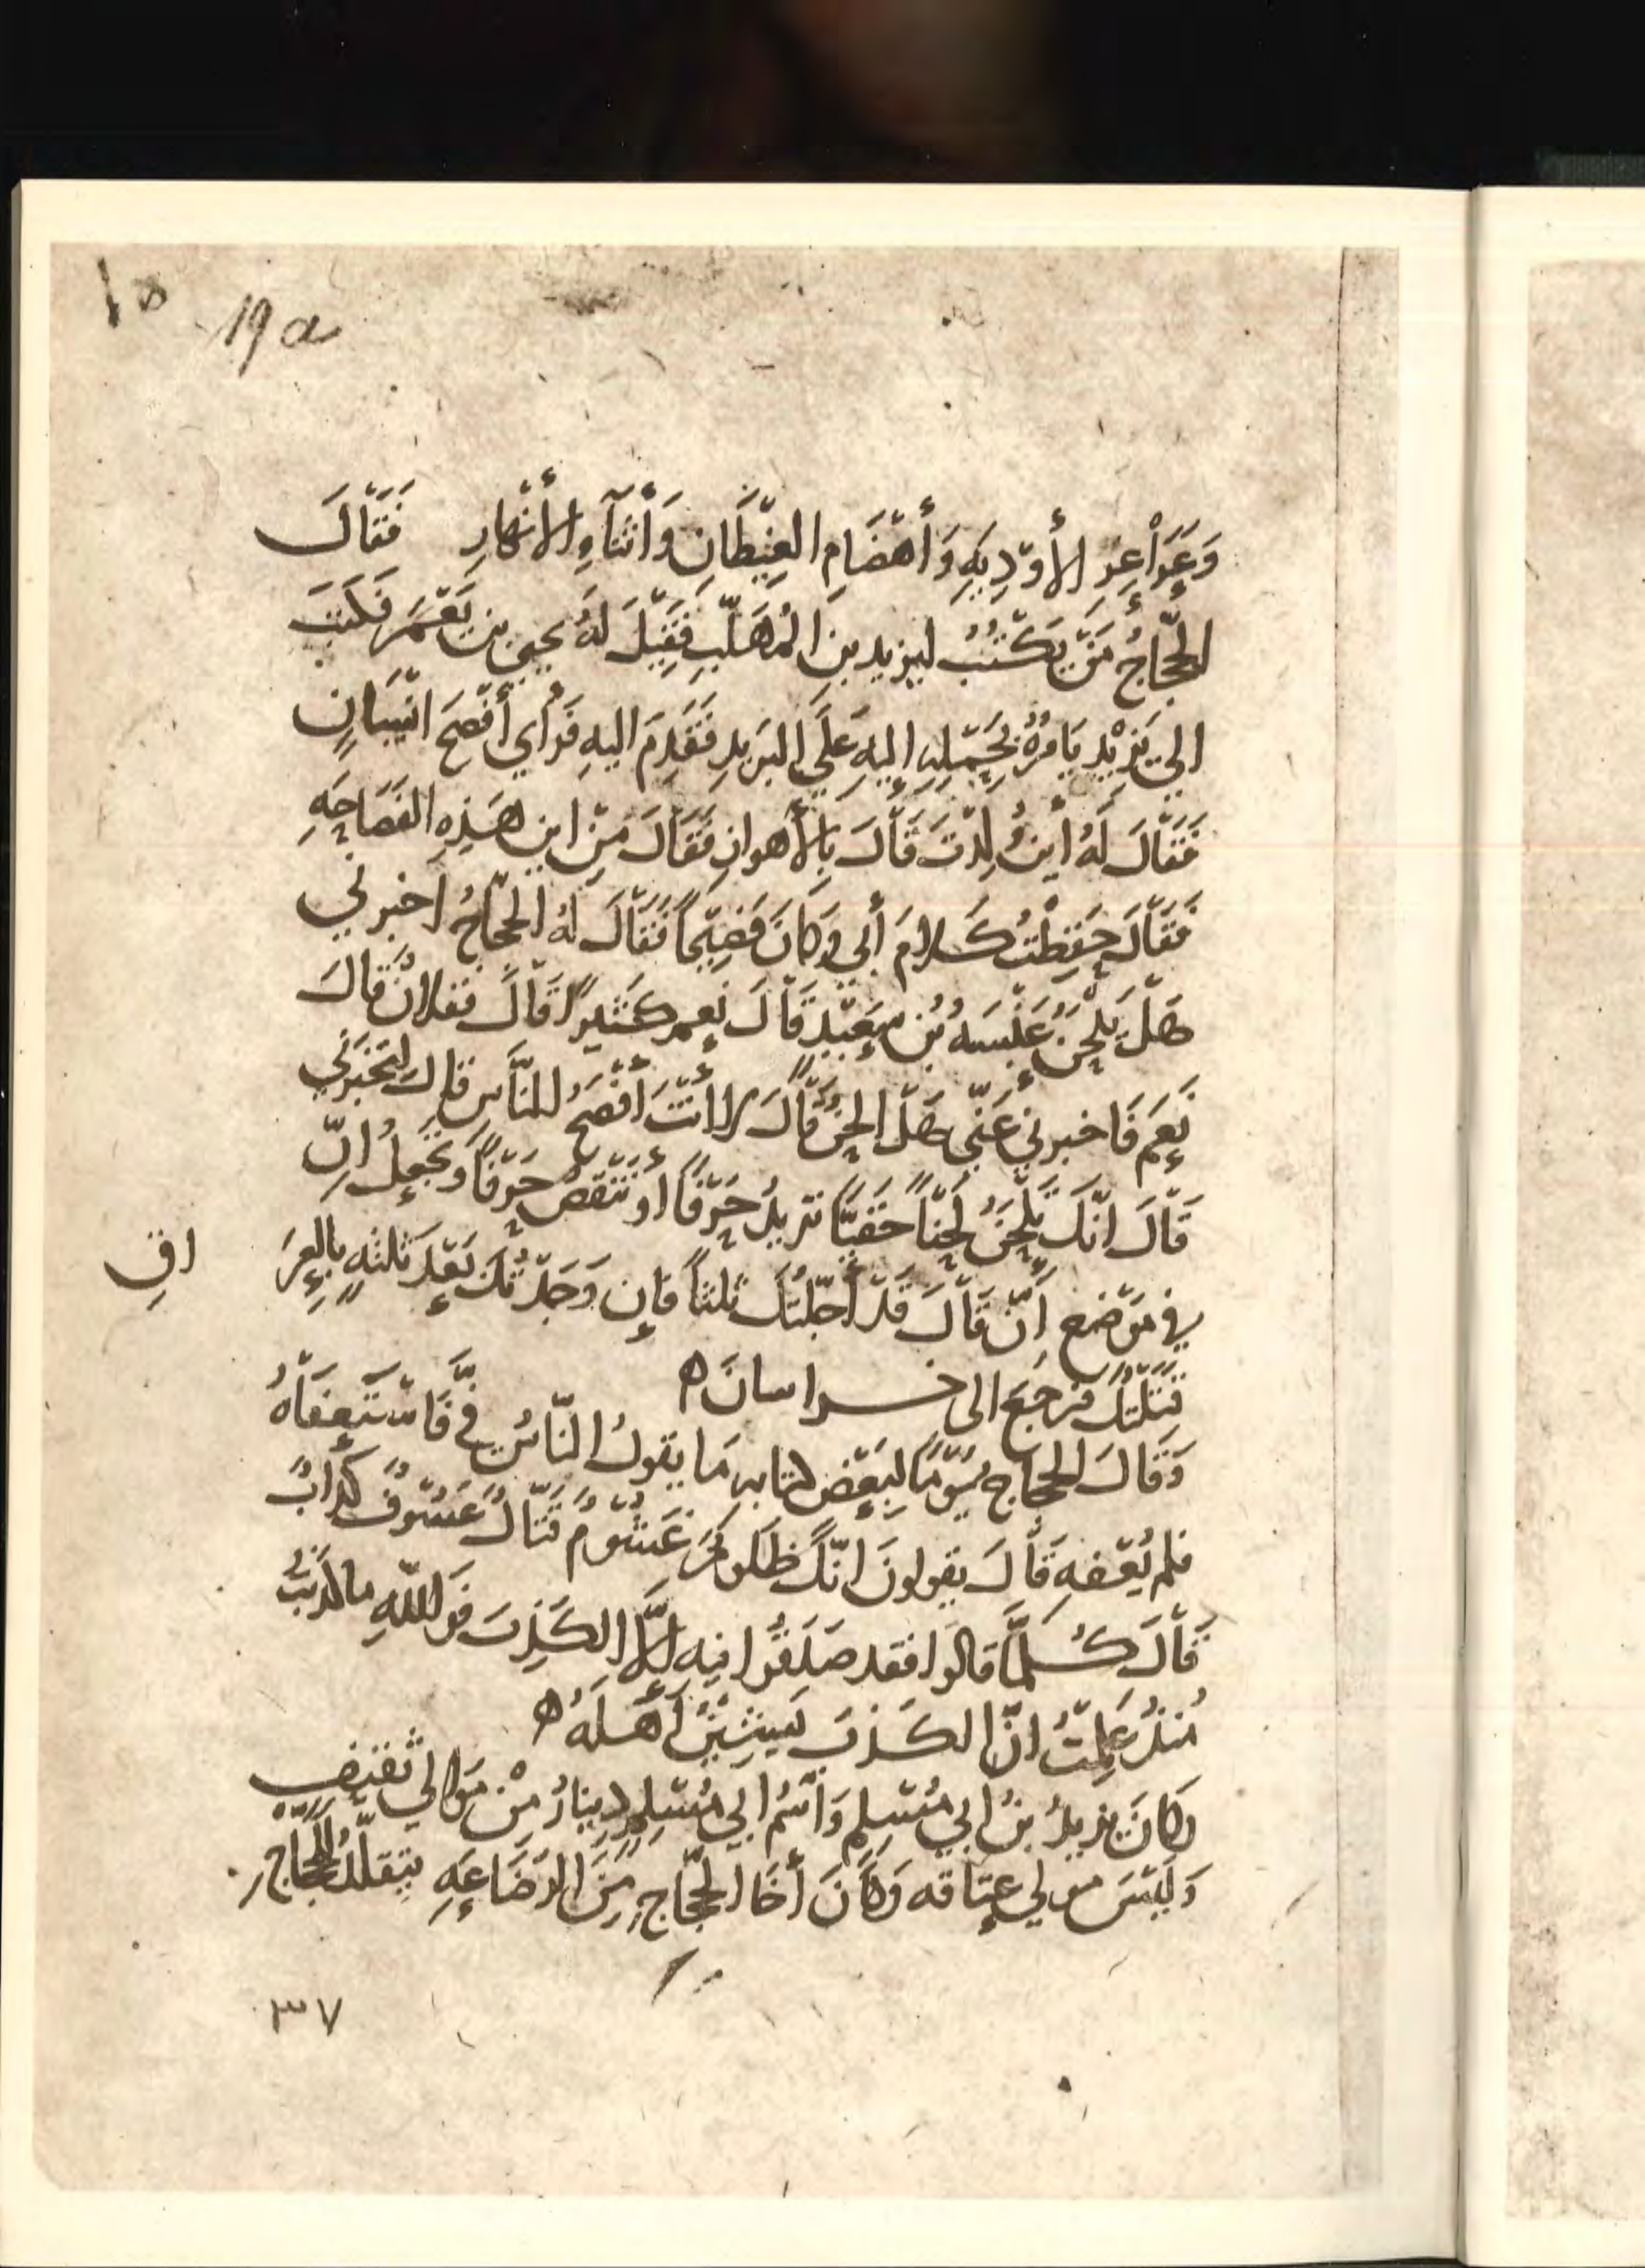 ١٥
19 a
وَعَوَاْعِرِ الأَوْدِيَةِ وَأَهْضَامِ الغِيْطَانِ وَأَثْنَآءِ الأَنْهَارِ فَقَاْلَ
الحَجَّاجُ مَنْ يَكْتُبُ ليزيد بنِ المُهَلَّبِ فَقِيْلَ لَهُ يحيى بن يَعْمَرَ فكتبَ
الي يَزِيْد يَامُرُهُ بِحَمْلِهِ إليهِ عَلَي البَرِيدِ فَقَدِمَ اليهِ فَرَأي أَفْصَحَ انْسَانٍ
فَقَاْلَ لَهُ أينَ وُلِدْتَ قَاْلَ بِالأَهواز فَقَاْلَ مِنْ اين هَذِهِ الفَصَاحَةِ
فَقَاْلَ حَفِظْتُ كَلامَ أبي وَكَانَ فَصِيْحاً فَقَاْلَ لهُ الحَجّاجُ اخبرني
هَلْ يَلْحَنُ عَنْبَسَةُ بْنُ سَعِيْدٍ قَاْلَ نعم كَثيراً قَاْلَ ففلانٌ قَالَ
نَعَم فَاخبرني عَنِّي هَلْ الحَنُ قَاْلَ لا انْتَ أفْصَحُ للنَّاسِ قال لتُخْبِرَنِّي
قَاْلَ انّكَ تَلْحَنُ لَحْناً خَفيّاً تزيدُ حَرْفاً أو تَنْقُصُ حَرْفاً وَتَجْعَلُ انّ
في مَوْضع أنّ قَاْلَ قَدْ أجّلْتُكَ ثلثاً فإن وَجَدْتُكَ بَعْدَ ثلثةٍ بالعِرَ اقِ
قَتَلْتُكَ فَرَجَعَ الى خراسانَ ه
وَقَالَ الحجّاج يَوْمًا لبَعْض كتابه مَا يقولُ النّاسُ فيَّ فَاسْتَعفَاْهُ
فلم يُعْفه قَاْلَ يقولونَ انّكَ ظَلومٌ غَشُوْمٌ قَتَّالٌ عَسُوْفٌ كَذّابٌ
قَاْلَ كُلَّمَا قالوا فقد صَدَقُوا فيه الّا الكَذِبَ فَوَاللّهِ ما كَذَبْتُ
مُنذُ عَلِمْتُ انّ الكَذبَ يَشِيْنُ أهْلَهُ ه
وَكَانَ يزيدُ بنُ ابي مُسْلِمٍ وَاسْمُ ابي مُسْلِمٍ دِينارٌ مِنْ مَوالي ثقيفٍ
وَلَيْسَ مولى عتاقه وَكَانَ أخَا الحجّاجِ مِنَ الرَضَاعَةِ يتقلّدُ للحَجّاجِ
٣٧